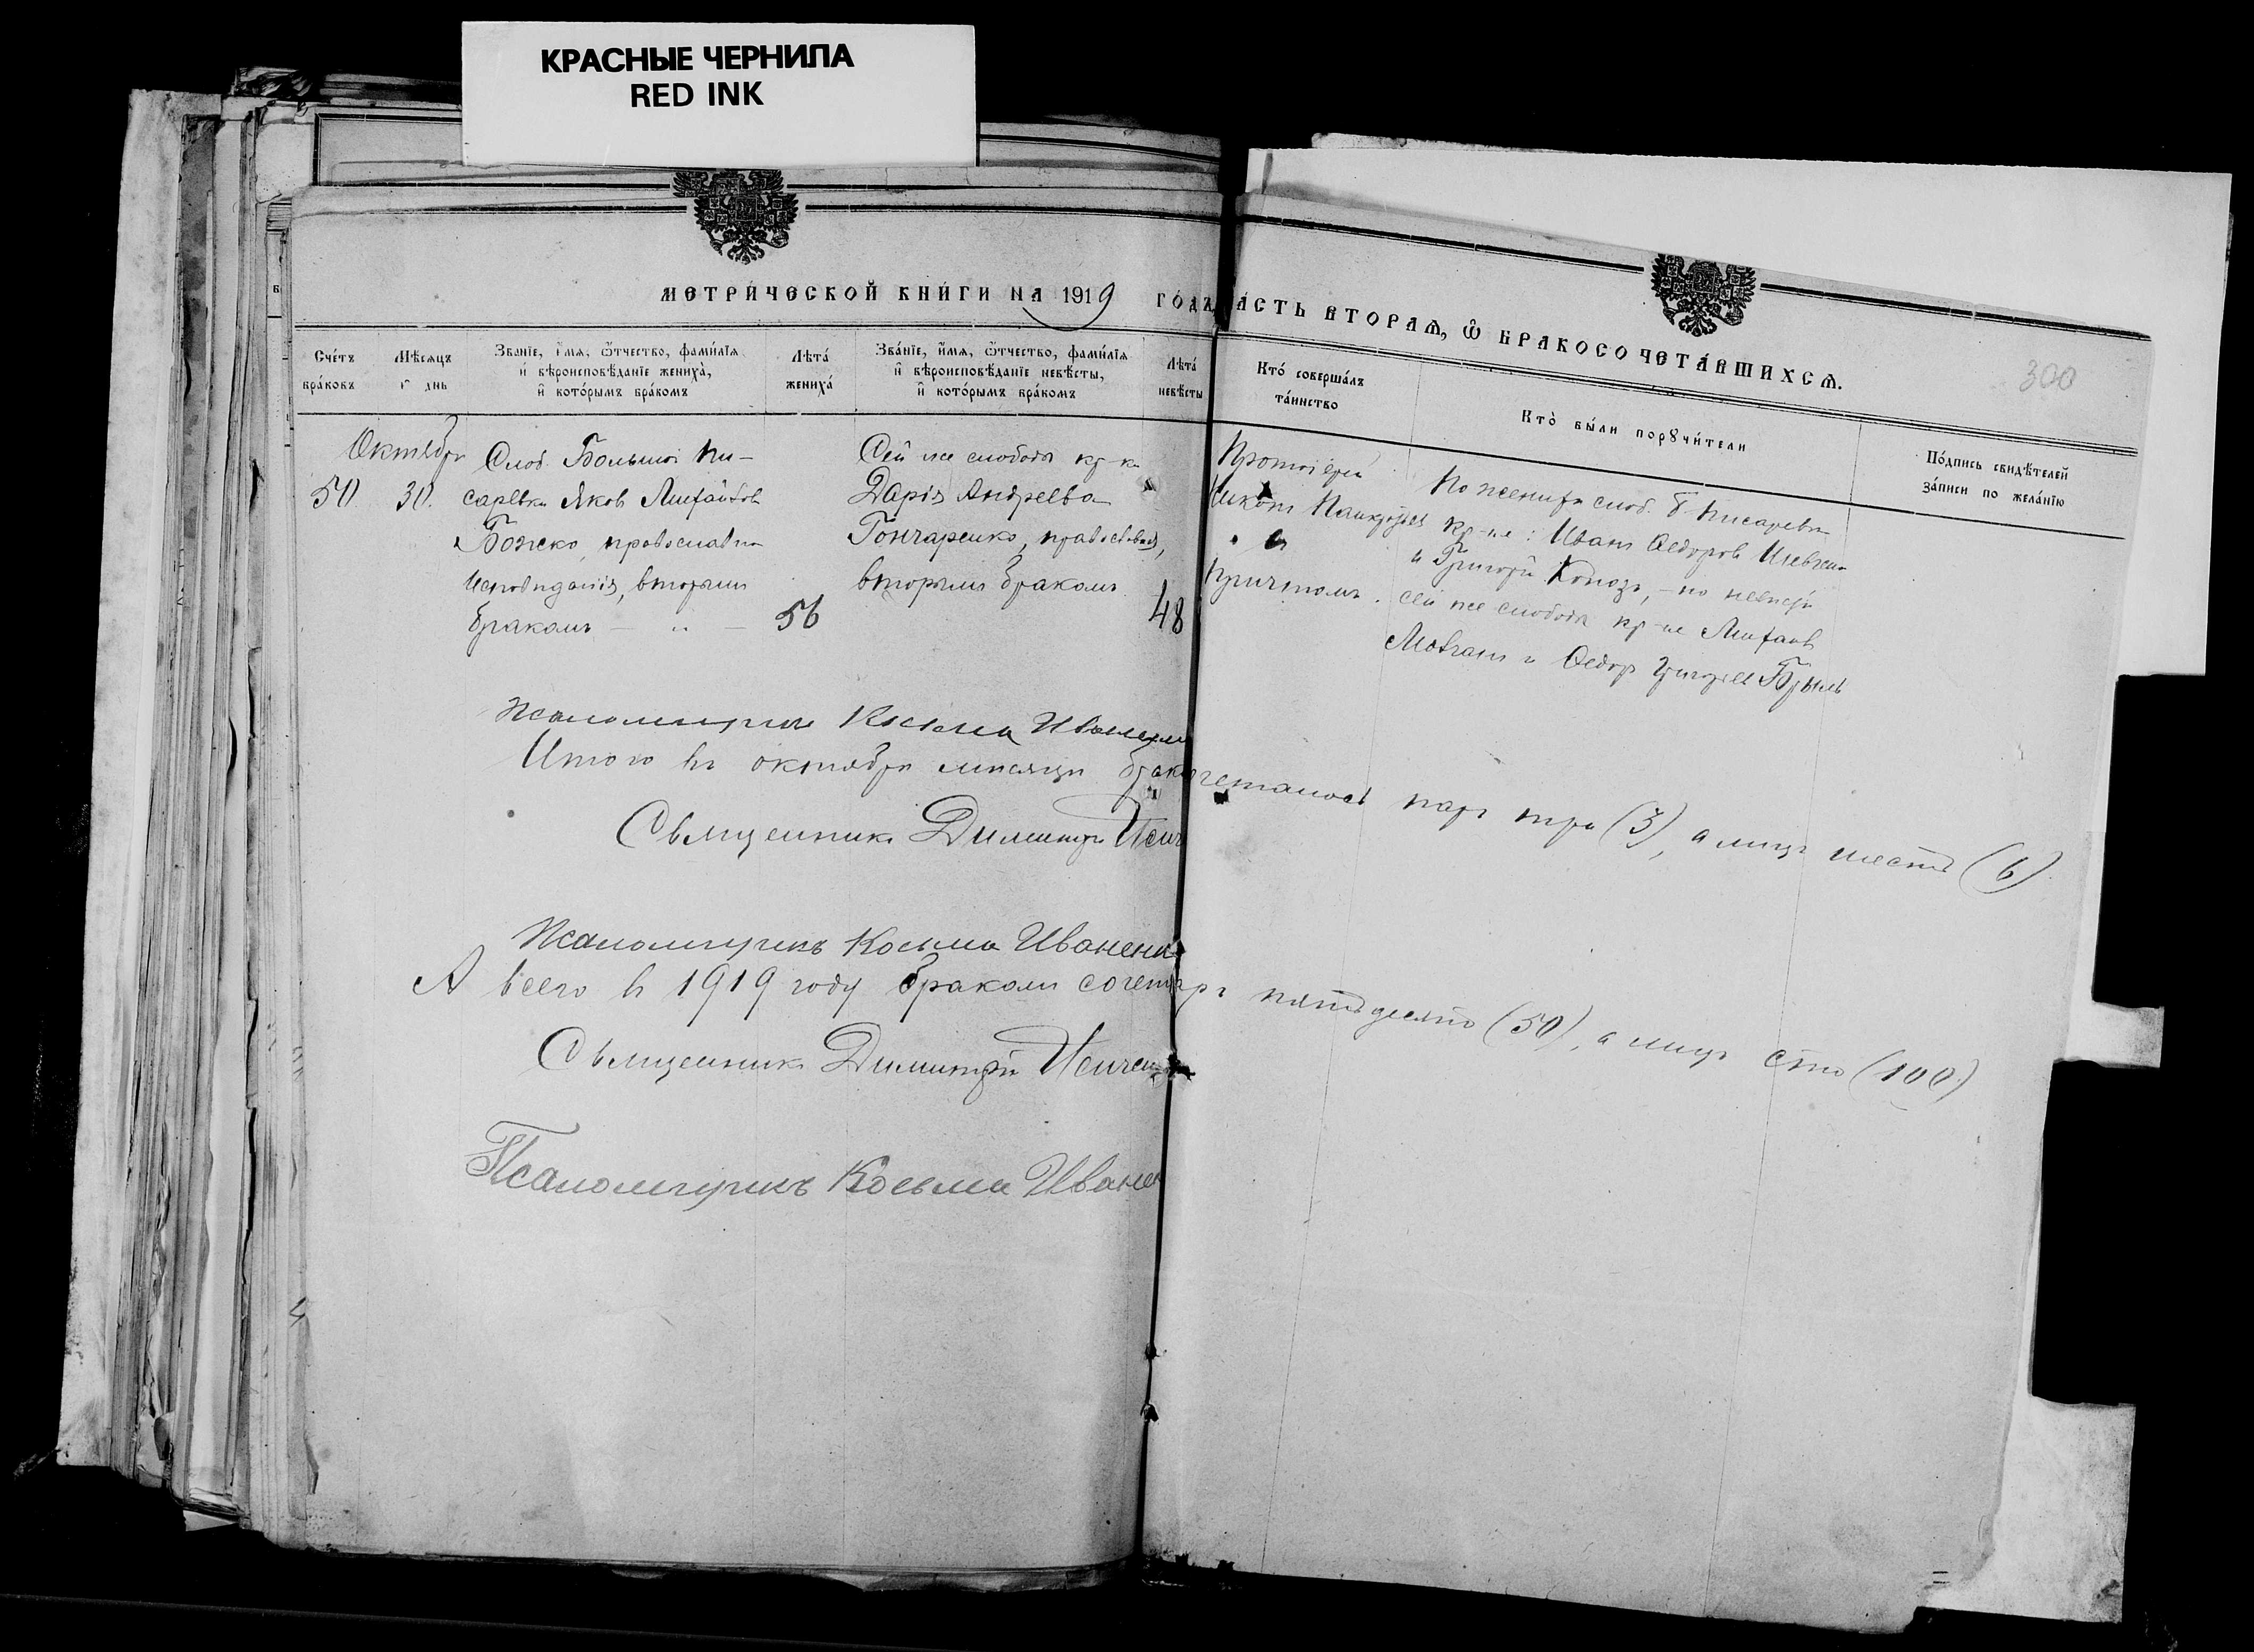 КРАСНЫЕ ЧЕРНИЛА
RED INK
МЕТРИ́ЧЕСКОЙ КНИ́ГИ НА 1919 ГО́ДЪ
ЧА́СТЬ ВТОРАѦ, Ѽ БРАКОСОЧЕТА́ВШИХСѦ.
300
Сче́тъ бра́ковъ
Мѣсяцъ и день
Зва́нїе, и́мя, ѻ́тчество, фами́лїя и вѣроисповѣ́данїе жениха̀, и кото́рымъ бра́комъ
Лѣта́ жениха́
Зва́нїе, и́мя, ѻ́тчество, фами́лїя и вѣроисповѣ́данїе невѣ́сты, и кото́рымъ бра́комъ
Лѣта́ невѣ́сты
Кто́ соверша́лъ та́инство
Кто̀ бы́ли порꙋчи́тели
По́дпись свидѣ́телей за́писи по жела́нїю
Октябрь
50. 30.
Слоб. Большой Пи-
саревки Яков
Божко, православна
исповѣданія, вторым
браком — „ — 56
Сей же слободы кр-ка
Дарія Андреева
Гончаренко, православная,
вторымъ бракомъ
48
Протоіерей
Никонъ
съ
причтомъ.
По женихѣ слоб. Б. Писаревки
кр-не: Иванъ Ѳедоров
и Григорій, — по невѣсте
сей же слободы кр-не
Мовчанъ и Ѳедор Григорьев
Псаломщикъ Косьма Иваненко
Итого въ октябрѣ мѣсяцѣ пар три (3), а лицъ шесть (6).
Священникъ Димитрій
Псаломщикъ Косьма Иваненко
А всего в 1919 году браком пятьдесятъ (50), а лицъ сто (100)
Священникъ Димитрій
Псаломщикъ Косьма Иванен